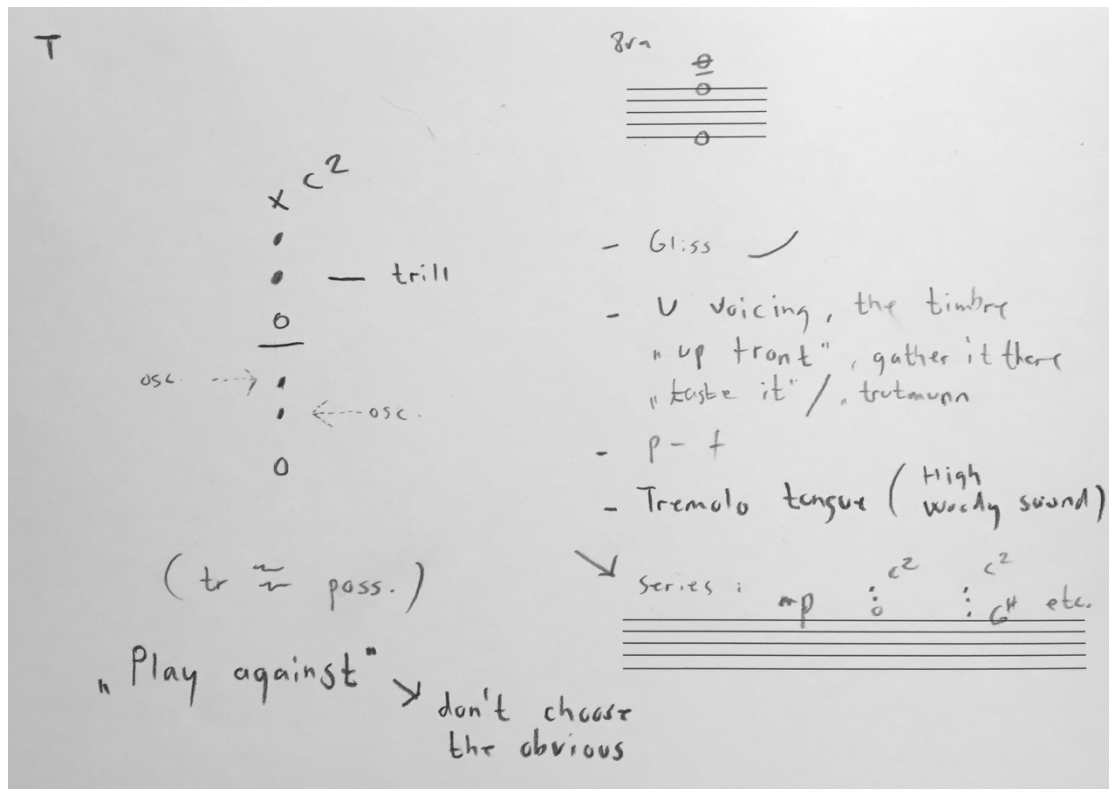 T
8va
x c2
trill
osc.
osc.
(tr ~ poss.)
„Play against"
don't choose
the obvious
- Gliss
- U voicing, the timbre
„up front", gather it there
„taste it" /
- p - f
- Tremolo tongue (High
Woody sound)
Series :
mp c2 c2
G# etc.